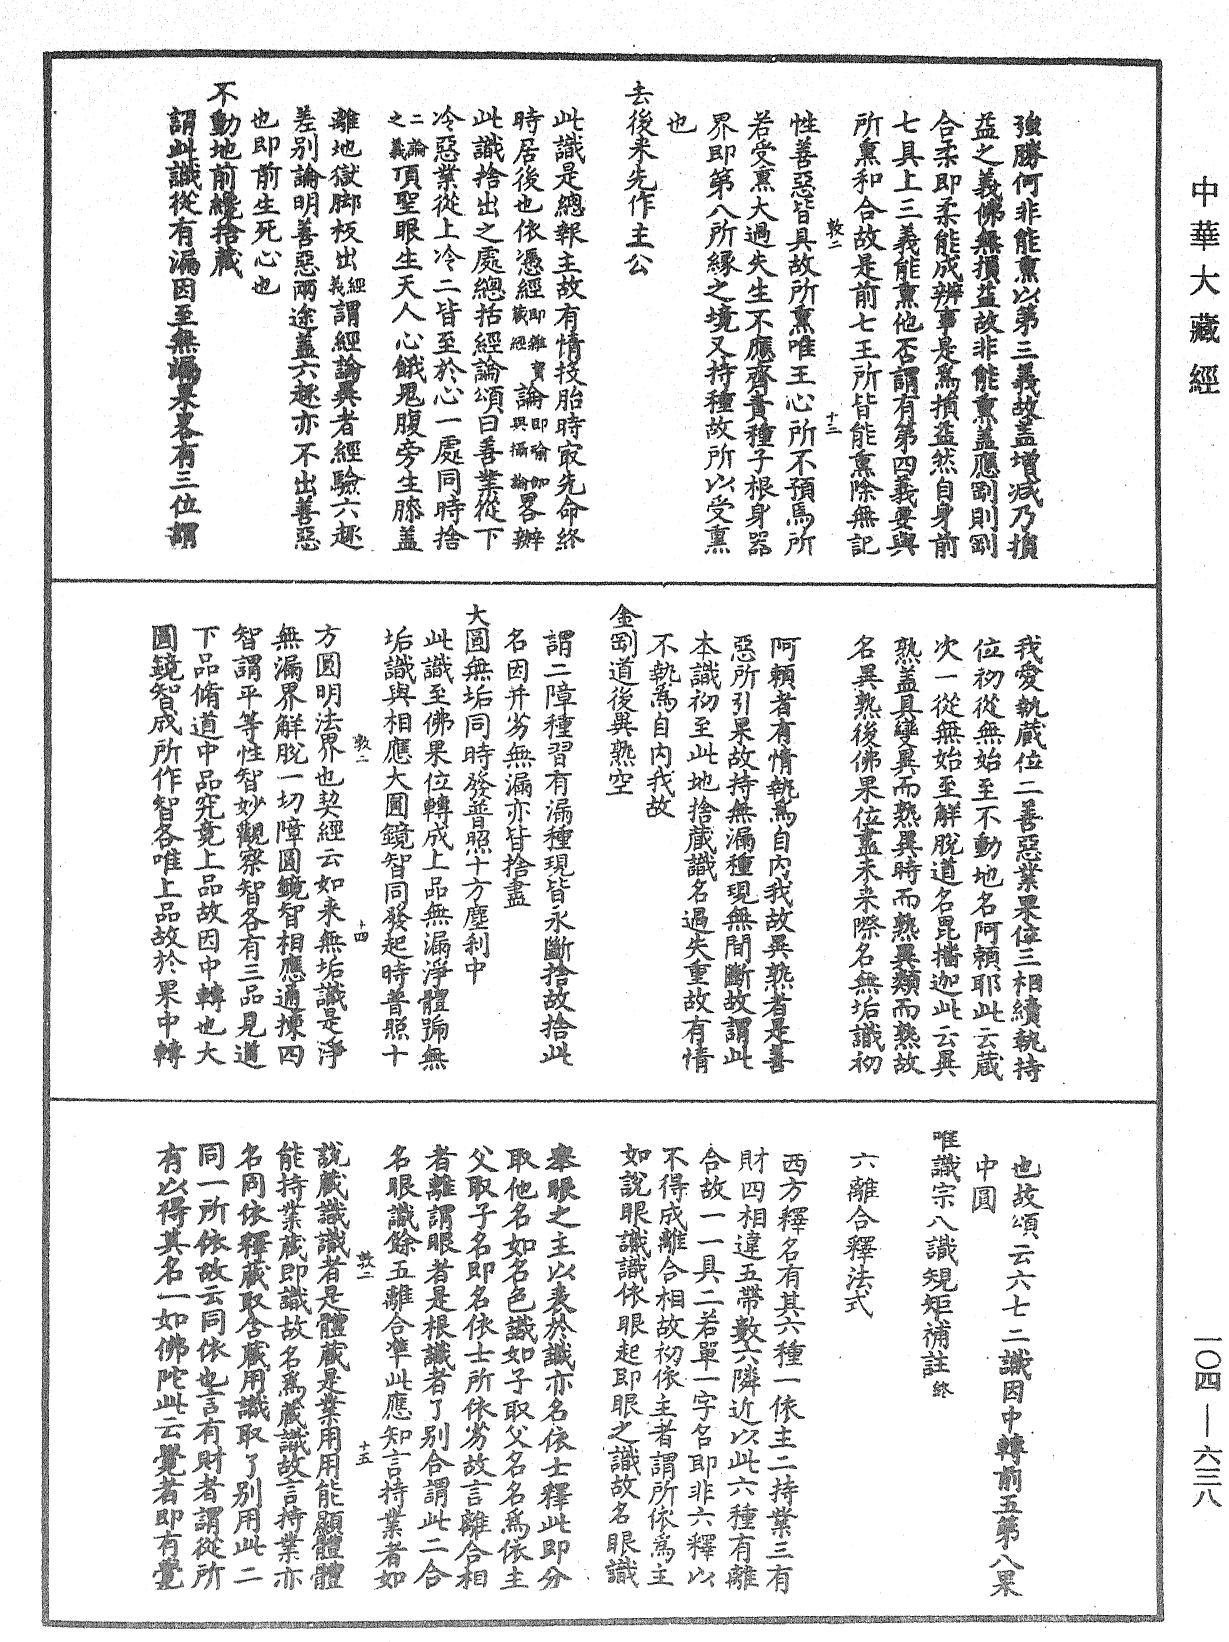 中華大藏經
一〇四—六三八
強勝何非能熏以第三義故盖增減乃損
益之義佛無損益故非能熏盖應剛則剛
合柔即柔能成辨事是為損益然自身前
七具上三義能熏他否謂有第四義要與
所熏和合故是前七王所皆能熏除無記
性善惡皆具故所熏唯王心所不預焉所
若受熏大過失生不應齊責種子根身器
界即第八所緣之境又持種故所以受熏
也
敦二
十三
去後來先作主公
此識是總報主故有情投胎時㝡先命終
時居後也依憑經即雜寶藏經論即瑜伽與攝論畧辦
此識捨出之處總括經論頌曰善業從下
冷惡業從上冷二皆至於心一處同時捨
二論之義論頂聖眼生天人心餓鬼腹旁生膝盖
離地獄脚板出經義謂經論異者經驗六趣
差别論明善惡兩途盖六趣亦不出善惡
也即前生死心也
不動地前纔捨藏
謂此識從有漏因至無漏果畧有三位謂
我愛執藏位二善惡業果位三相續執持
位初從無始至不動地名阿賴耶此云藏
次一從無始至解脫道名毘播迦此云異
熟盖具變異而熟異時而熟異類而熟故
名異熟後佛果位盡未來際名無垢識初
阿賴者有情執為自內我故異熟者是善
惡所引果故持無漏種現無間斷故謂此
本識初至此地捨藏識名過失重故有情
不執為自內我故
金剛道後異熟空
謂二障種習有漏種現皆永斷捨故捨此
名因并劣無漏亦皆捨盡
大圓無垢同時發普照十方塵剎中
此識至佛果位轉成上品無漏淨體號無
垢識與相應大圓鏡智同發起時普照十
敦二
十四
方圓明法界也契經云如來無垢識是淨
無漏界解脫一切障圓鏡智相應通揀四
智謂平等性智妙觀察智各有三品見道
下品脩道中品究竟上品故因中轉也大
圓鏡智成所作智各唯上品故於果中轉
也故頌云六七二識因中轉前五第八果
中圓
唯識宗八識規矩補註終
六離合釋法式
西方釋名有其六種一依主二持業三有
財四相違五帶數六隣近以此六種有離
合故一一具二若單一字名即非六釋以
不得成離合相故初依主者謂所依為主
如說眼識識依眼起即眼之識故名眼識
舉眼之主以表於識亦名依士釋此即分
取他名如名色識如子取父名名為依主
父取子名即名依士所依劣故言離合相
者離謂眼者是根識者了别合謂此二合
名眼識餘五離合準此應知言持業者如
敦二
十五
說藏識識者是體藏是業用用能顯體體
能持業藏即識故名為藏識故言持業亦
名同依釋藏取含藏用識取了别用此二
同一所依故云同依也言有財者謂從所
有以得其名一如佛陀此云覺者即有覺